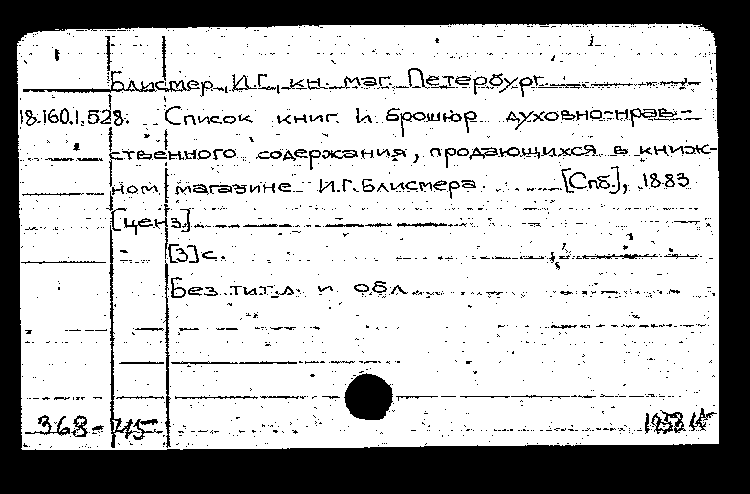 Блисмер, И.Г., кн. маг. Петербург.
18.160.1.528. Список книг И. брошюр духовно-нрав-
ственного содержания, продающихся в книж-
ном магазине И.Г. Блисмера. [Спб.], 1883
[ценз]
[3] с.
Без тит.л. и обл.
368-745